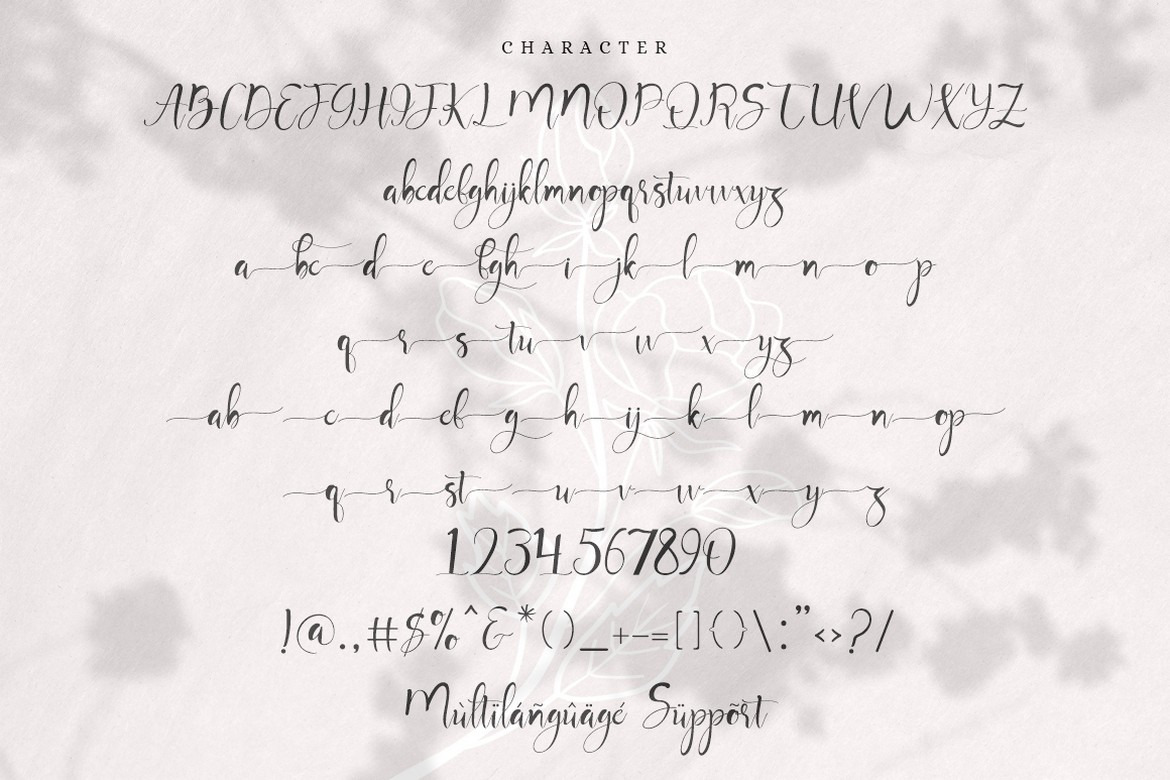 CHARACTER
ABCDEFGHIJKLMNOPQRSTUVWXYZ
abcdefghijklmnopqrstuvwxyz
a bc d e fgh i jk l m n o p
q r s tu v w x yz
ab c d ef g h ij k l m n op
q r st u v w x y z
1234567890
!@.,#$%^&*()_+-=[]{}\:"<>?/
Mùltïláñgûägé Süppõrt